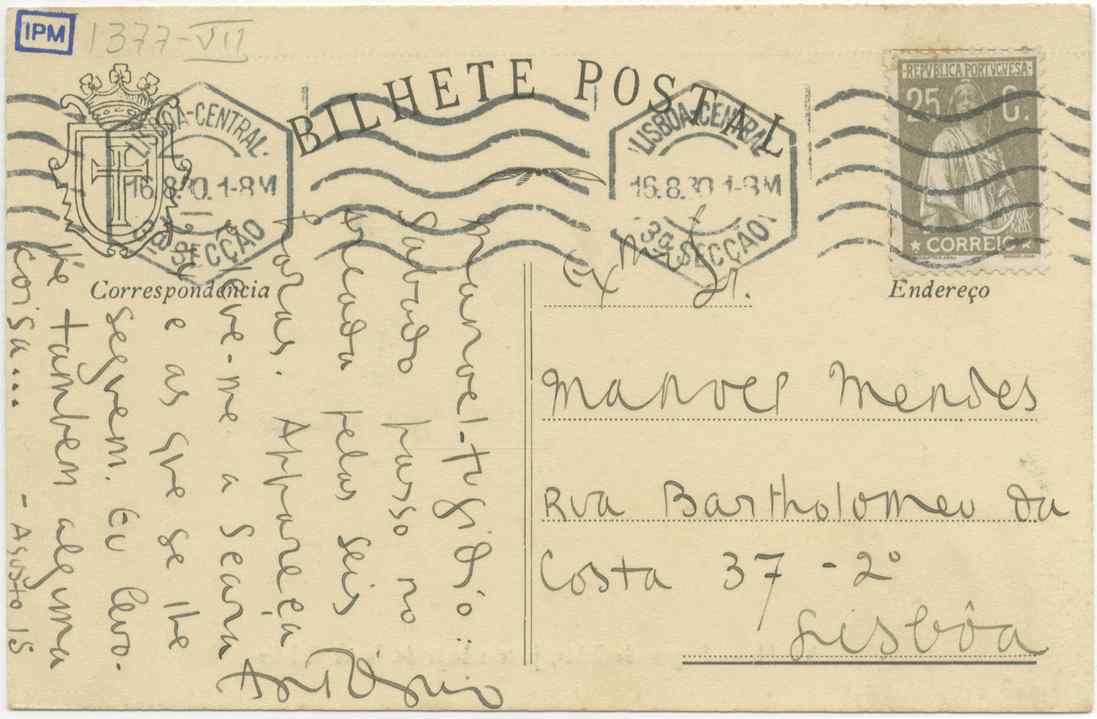 IPM
1377-VII
BILHETE POSTAL
LISBOA-CENTRAL
16.8.30.1-8M
3ª SECÇÃO
LISBOA-CENTRAL
16.8.30 1-8M
3ª SECÇÃO
REPVBLICA PORTVGVESA
25 C.
CORREIO
Correspondencia
Endereço
Sabado passo no
Arcada pelas seis
horas. Appareça
e leve-me a Seara
e as que se lhe
seguem. Eu levo-
lhe tambem alguma
coisa... - Agosto 15
Exmo Sr.
Manoel Mendes
Rua Bartholomeu da
Costa 37 - 2º
Lisbôa